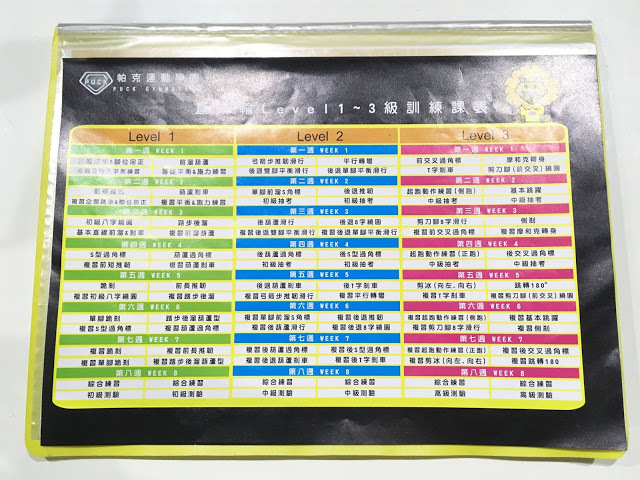 PUCK
帕克運動學園
PUCK
直排輪Level1~3級訓練課表
Level 1
Level 2
Level 3
第一週 WEEK 1
第一週 WEEK 1
第一週 WEEK 1
前溜葫蘆
弓箭步推輪滑行
平行轉彎
前交叉過角標
摩和克轉身
基本平衡&跑力練習
後退雙腳平衡滑行
後退單腳平衡滑行
T字剎車
剪刀腳(前交叉)繞圓
第二週 WEEK 2
第二週 WEEK 2
第二週 WEEK 2
葫蘆剎車
單腳前溜S角標
後退推輪
起跑動作練習(正跑)
基本跳躍
複習平衡&跑力練習
初級抽考
初級抽考
中級抽考
中級抽考
第三週 WEEK 3
第三週 WEEK 3
第三週 WEEK 3
初級八字繞圓
踏步後溜
後葫蘆滑行
後退8字繞圓
剪刀腳8字滑行
側剎
基本直線前溜&剎車
複習前溜葫蘆
複習後退雙腳平衡滑行
複習後退單腳平衡滑行
複習前交叉過角標
複習摩克轉身
第四週 WEEK 4
第四週 WEEK 4
第四週 WEEK 4
S型過角標
葫蘆過角標
後葫蘆過角標
後S型過角標
起跑動作練習(正跑)
後交叉過角標
複習前短推輪
複習葫蘆剎車
初級抽考
初級抽考
中級抽考
中級抽考
第五週 WEEK 5
第五週 WEEK 5
第五週 WEEK 5
跪剎
前長推輪
後葫蘆剎車
後T字剎車
剪冰(向左、向右)
跳轉180°
複習初級八字繞圓
複習踏步後溜
複習弓箭步推輪滑行
複習平行轉彎
複習T字剎車
複習剪刀腳(前交叉)繞圓
第六週 WEEK 6
第六週 WEEK 6
第六週 WEEK 6
單腳跪剎
踏步後溜葫蘆型
複習單腳前溜S角標
複習後退推輪
複習起跑動作練習(正跑)
複習基本跳躍
複習S型過角標
複習葫蘆過角標
複習後葫蘆滑行
複習後退8字繞圓
複習剪刀腳8字滑行
複習側剎
第七週 WEEK 7
第七週 WEEK 7
第七週 WEEK 7
複習跪剎
複習前長推輪
複習後葫蘆過角標
複習後S型過角標
複習起跑動作練習(正跑)
複習後交叉過角標
複習單腳跪剎
複習踏步後溜葫蘆型
複習後葫蘆剎車
複習後T字剎車
複習剪冰(向左、向右)
複習跳轉180
第八週 WEEK 8
第八週 WEEK 8
第八週 WEEK 8
綜合練習
綜合練習
綜合練習
綜合練習
綜合練習
綜合練習
初級測驗
初級測驗
中級測驗
中級測驗
高級測驗
高級測驗